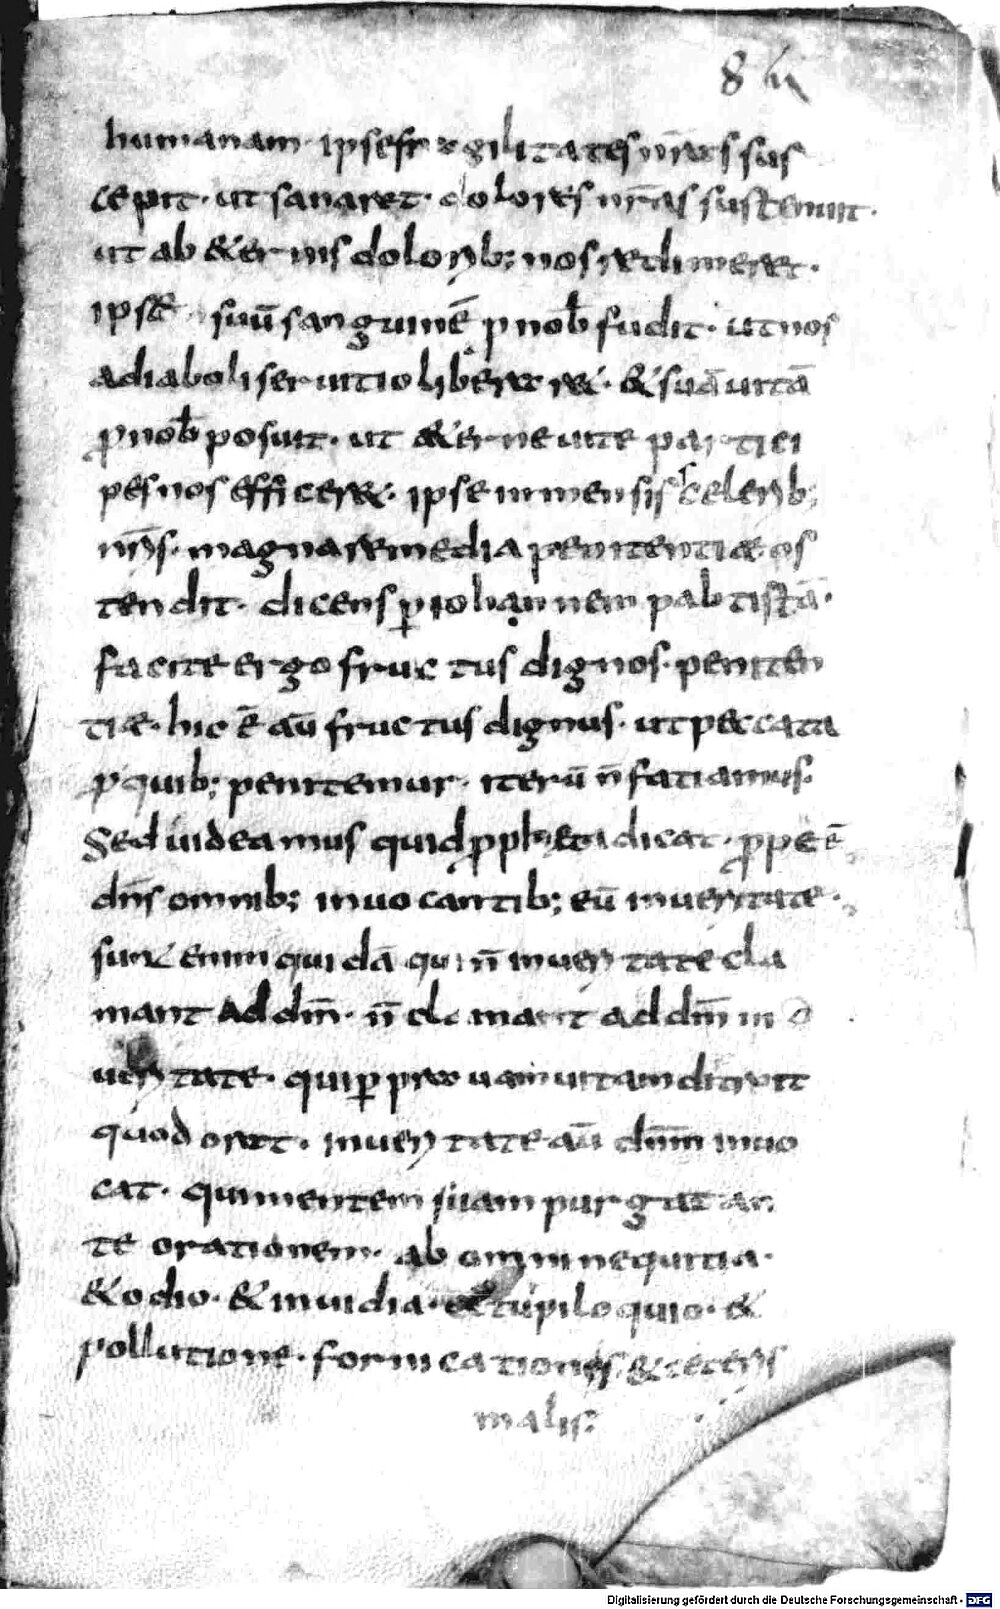 8
humanam · ipse fragilitates nr̄as sus
cepit · ut sanaret · dolores nr̄as sustenuit ·
ut ab &ernis dolorib; nos redimeret ·
ipse suū sanguinē p nob̄ fudit · ut nos
a diaboli seruitio liberar& · & suā uitā
pro nob̄ posuit · ut &erne uite partici
pes nos effic̄er& · ipse inmensis sceleribƺ
nr̄is · magna remedia penitentiae os
tendit · dicens ꝑ iohannem pabtistā ·
facite ergo fructus dignos · peniten
tiae · hic ē aū fructus dignus · ut peccata
ꝓ quib; penitemur · iterū n̄ fatiamus ·
Sed uideamus quid propheta dicat · prope ē
dn̄s omnib; inuocantib; eū in ueritate ·
sunt enim quidā qui n̄ in ueritate cla
mant ad dn̄m · n̄ clamant ad dn̄m in
ueritate · qui ꝑ prauam uitam ditrait
quod orat · in ueritate aū dn̄m inuo
cat · qui mentem suam purgat an
te orationem · ab omni nequitia ·
& odio · & inuidia · & turpiloquio · &
pollutione · fornicationis · & ceteris
malis ;
Digitalisierung gefördert durch die Deutsche Forschungsgemeinschaft - DFG